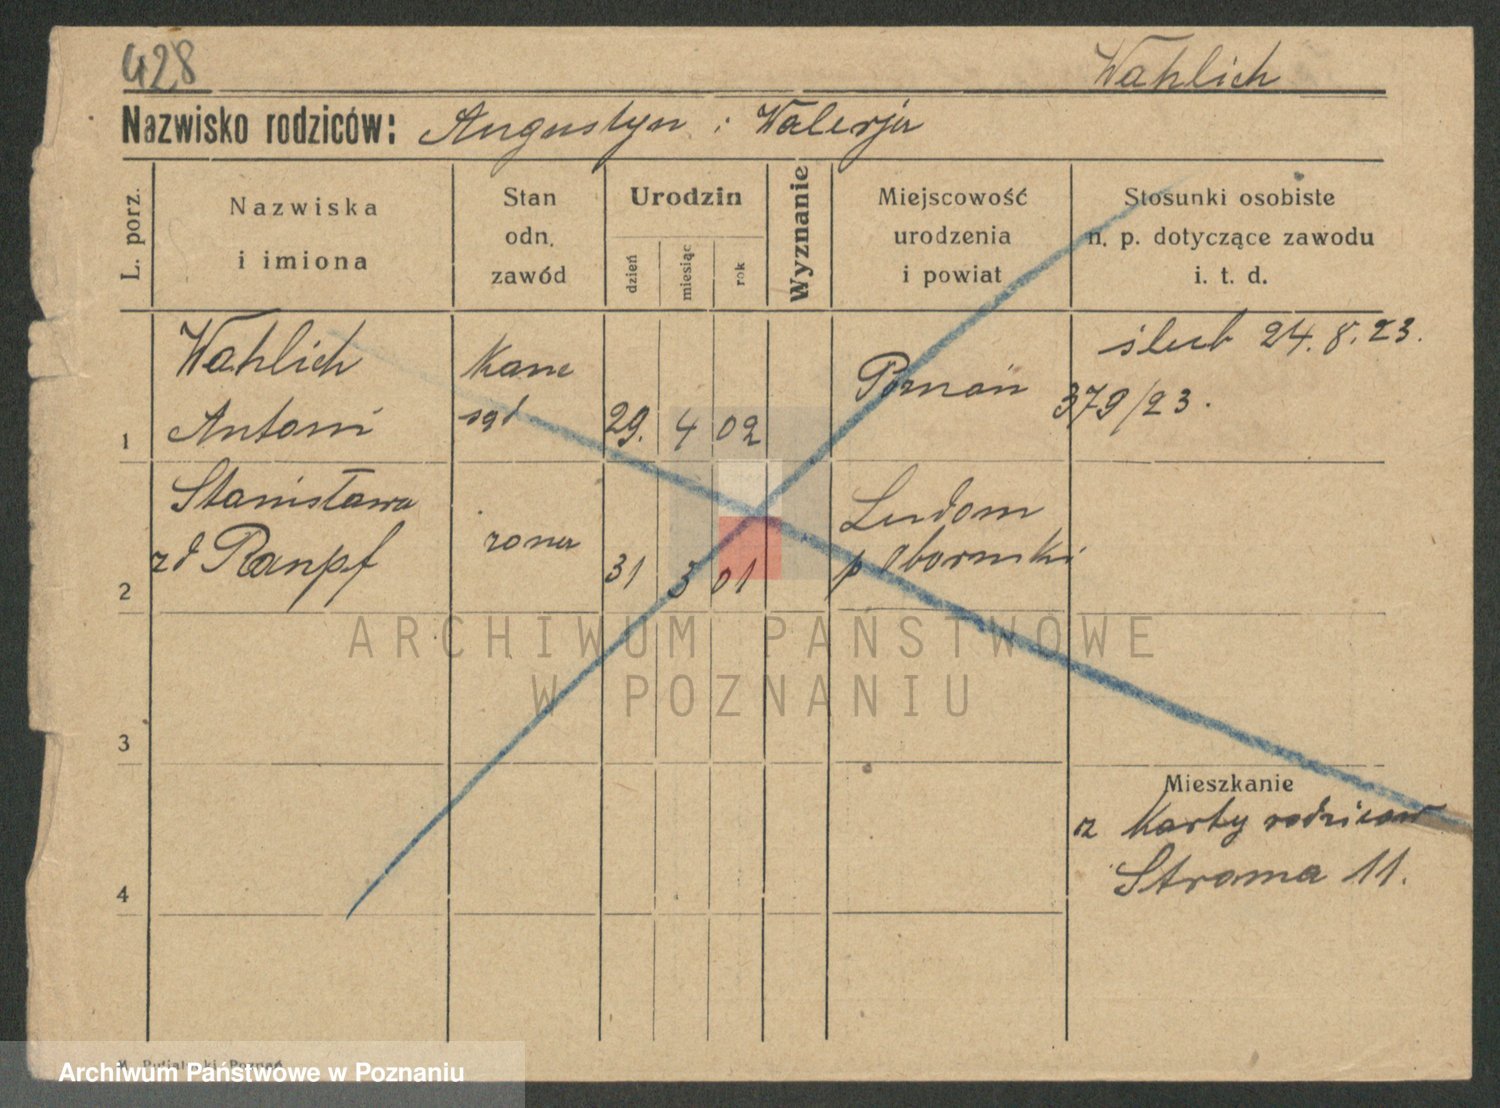 428
Wahlich
Nazwisko rodziców: Augustyn i Walerja
L. porz.
Nazwiska
i imiona
Stan
odn.
zawód
Urodzin
dzień
miesiąc
rok
Wyznanie
Miejscowość
urodzenia
i powiat
Stosunki osobiste
n. p. dotyczące zawodu
i. t. d.
Wahlich
Antoni
kanc
sąd
29. 4 02
Poznań
ślub 24.8.23.
379/23.
1
Stanisława
zd
żona
31 3 01
Ludom
p Obornski
2
ARCHIWUM PAŃSTWOWE
W POZNANIU
3
Mieszkanie
z Karty rodziców
Stroma 11.
4
Poznań
Archiwum Państwowe w Poznaniu